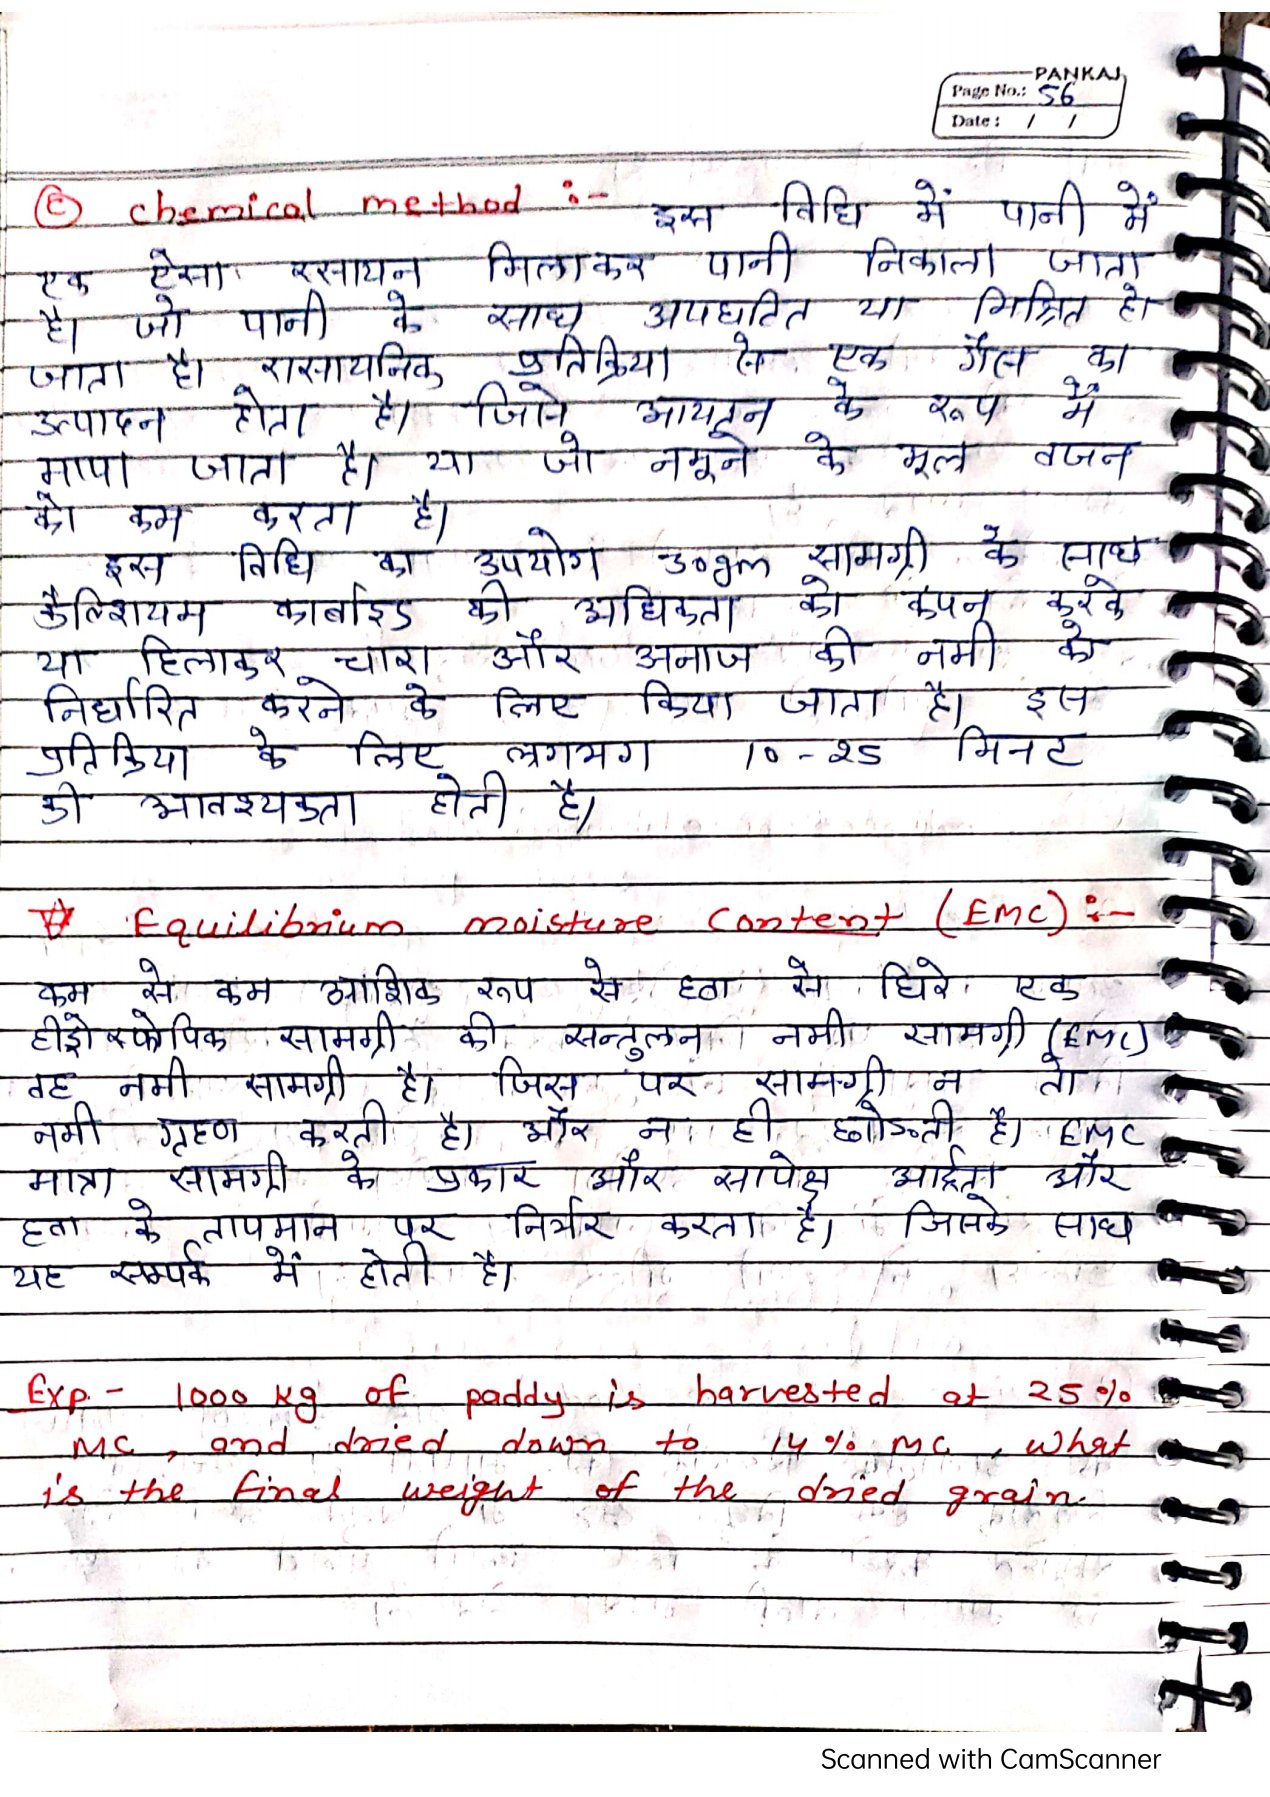 PANKAJ
Page No.: 56
Date : / /
(E) chemical method :- इस विधि में पानी में
एक ऐसा रसायन मिलाकर पानी निकाला जाता
है। जो पानी के साथ अपघटित या मिश्रित हो
जाता है। रासायनिक प्रतिक्रिया से एक गैस का
उत्पादन होता है। जिसे आयतन के रूप में
मापा जाता है। या जो नमूने के मूल वजन
को कम करता है।
इस विधि का उपयोग 30gm सामग्री के साथ
कैल्शियम कार्बाइड की अधिकता को कंपन करके
या हिलाकर चारा और अनाज की नमी को
निर्धारित करने के लिए किया जाता है। इस
प्रतिक्रिया के लिए लगभग 10-25 मिनट
की आवश्यकता होती है।
Equilibrium moisture Content (EMC) :-
कम से कम आंशिक रूप से हवा से घिरे एक
हीड्रोस्कोपिक सामग्री की सन्तुलन नमी सामग्री (EMC)
वह नमी सामग्री है। जिस पर सामग्री न तो
नमी गृहण करती है। और न ही छोड़ती है। EMC
मात्रा सामग्री के प्रकार और सापेक्ष आर्द्रता और
हवा के तापमान पर निर्भर करता है। जिसके साथ
यह सम्पर्क में होती है।
Exp - 1000 kg of paddy is harvested at 25%
MC, and dried down to 14% MC, what
is the final weight of the dried grain.
Scanned with CamScanner